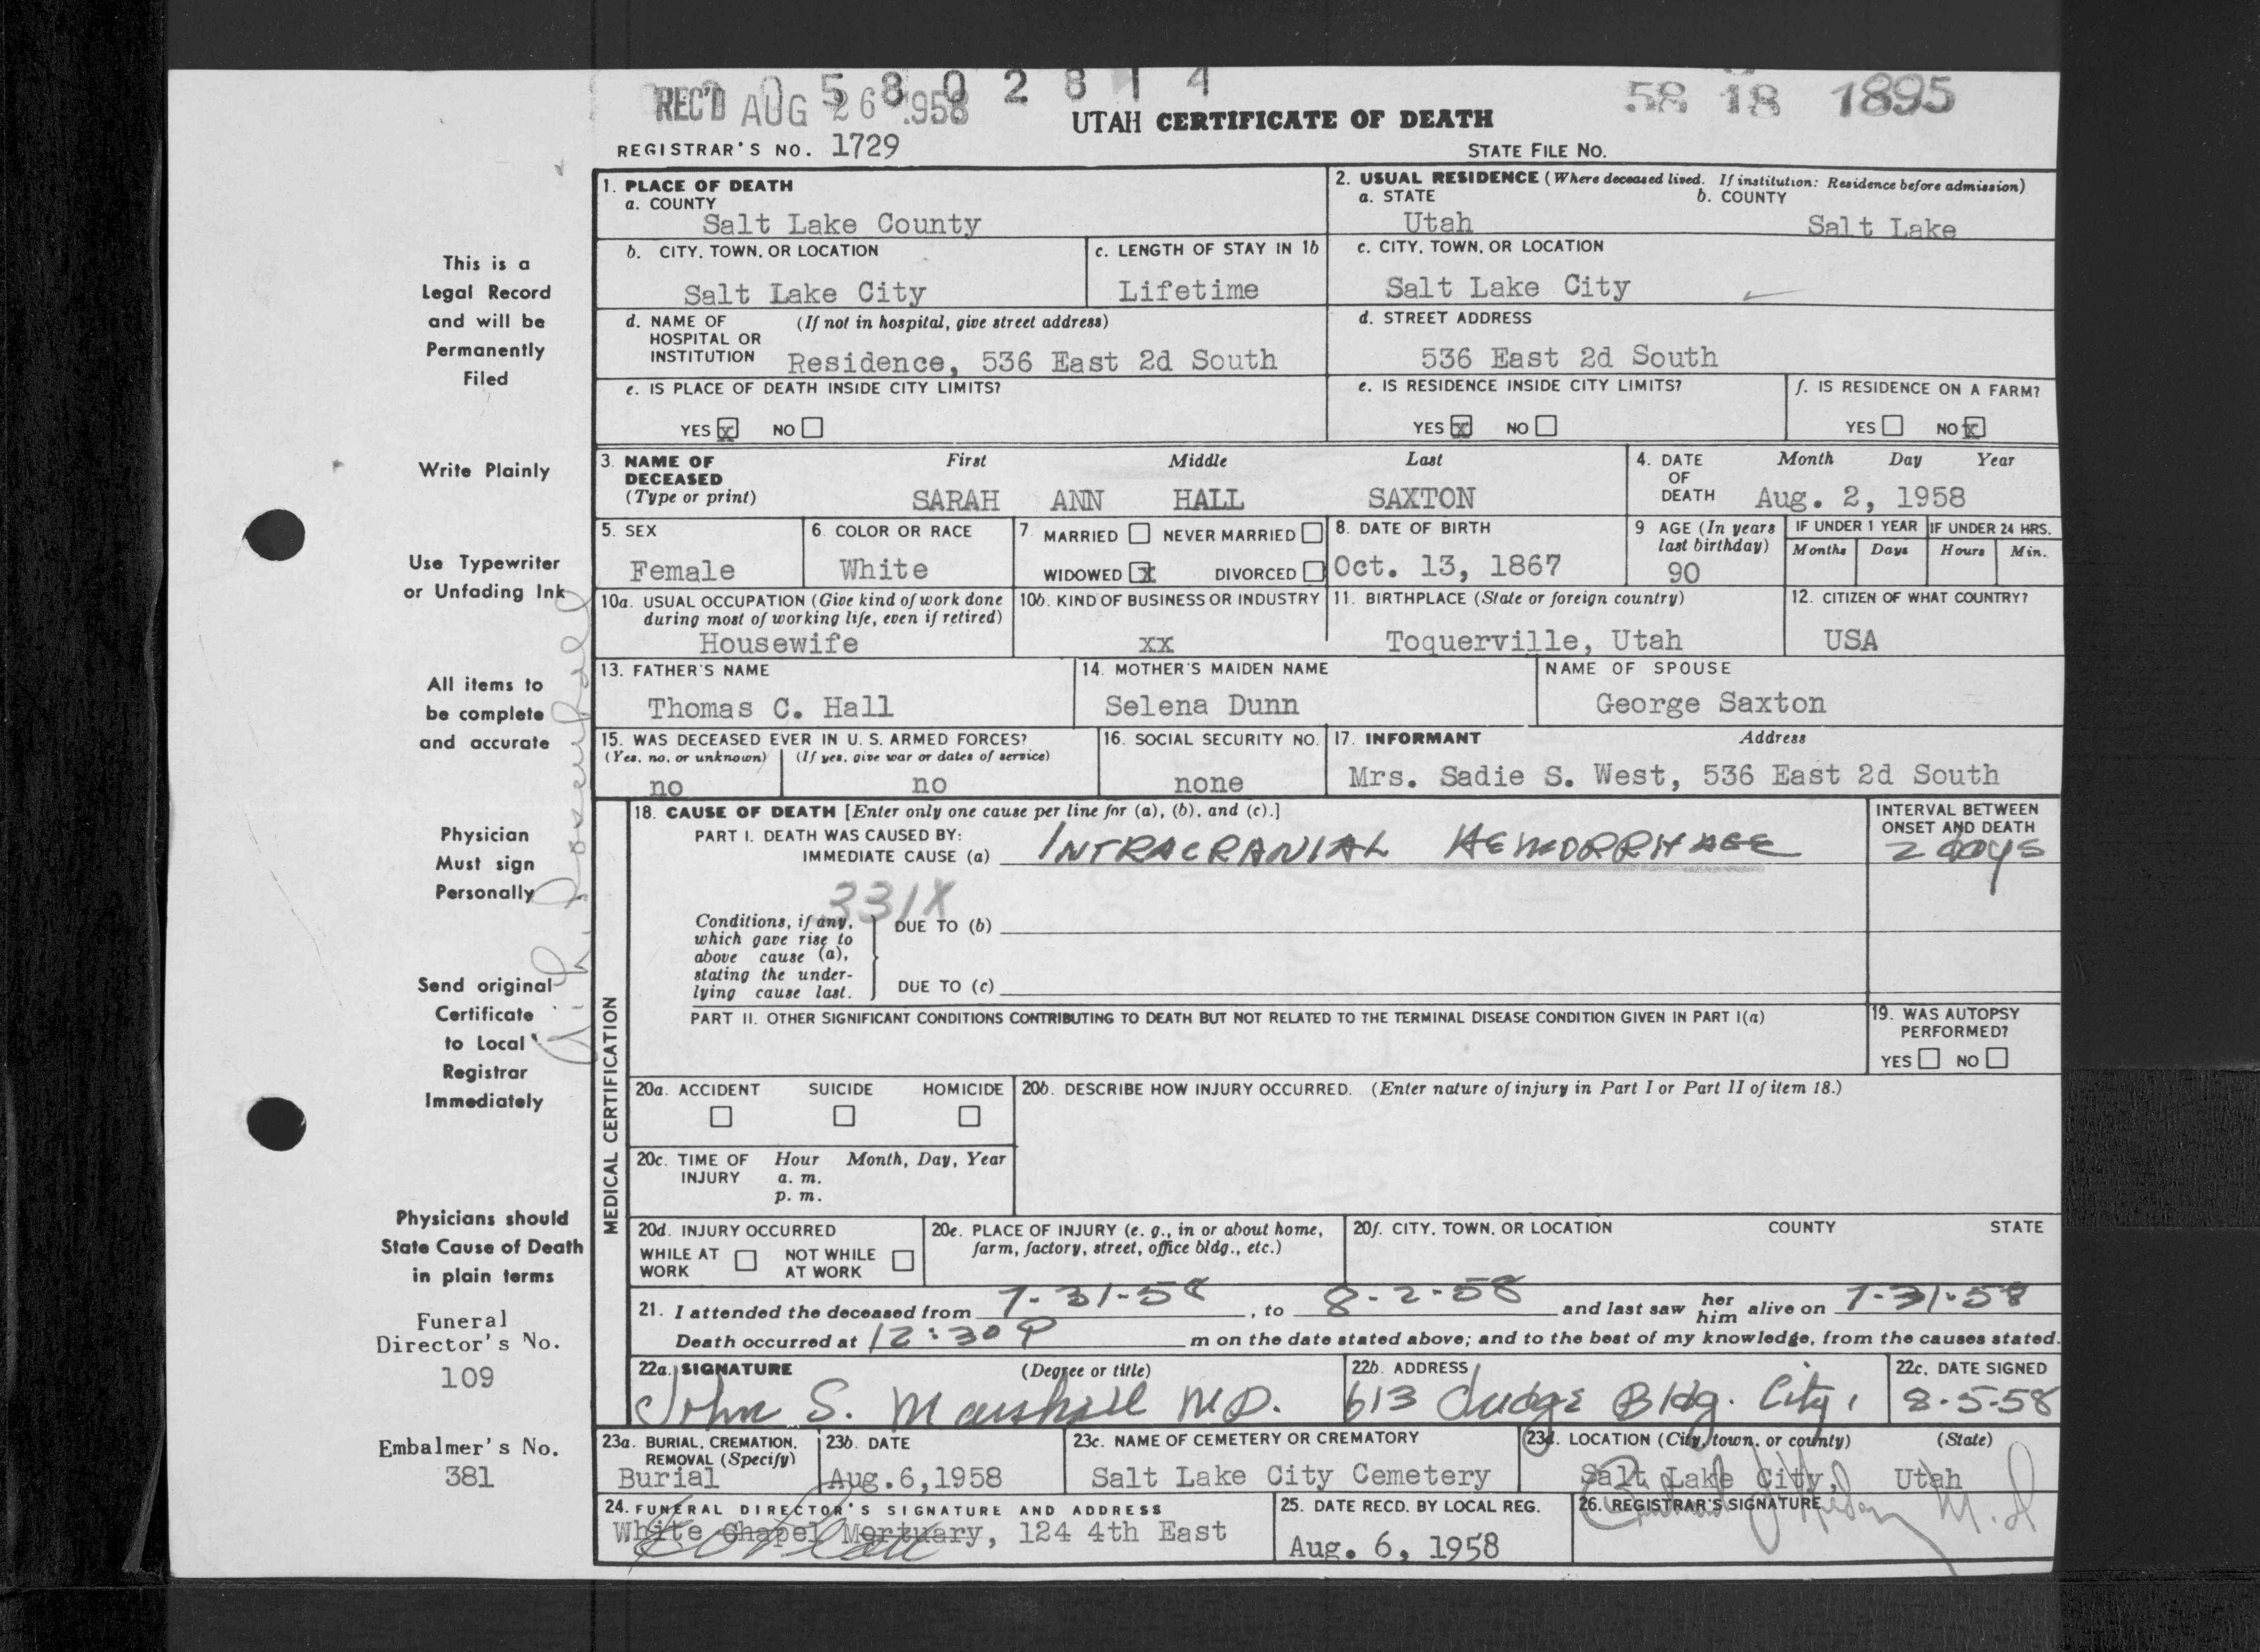 5 8 0 2 8 1 4
REC'D AUG 26 1958
58 18 1895
UTAH CERTIFICATE OF DEATH
REGISTRAR'S NO. 1729
STATE FILE NO.
This is a
Legal Record
and will be
Permanently
Filed
Write Plainly
Use Typewriter
or Unfading Ink
All items to
be complete
and accurate
Physician
Must sign
Personally
Send original
Certificate
to Local
Registrar
Immediately
Physicians should
State Cause of Death
in plain terms
Funeral
Director's No.
109
Embalmer's No.
381
1. PLACE OF DEATH
a. COUNTY
Salt Lake County
2. USUAL RESIDENCE (Where deceased lived. If institution: Residence before admission)
a. STATE b. COUNTY
Utah Salt Lake
b. CITY, TOWN, OR LOCATION
Salt Lake City
c. LENGTH OF STAY IN 1b
Lifetime
c. CITY, TOWN, OR LOCATION
Salt Lake City
d. NAME OF (If not in hospital, give street address)
HOSPITAL OR
INSTITUTION Residence, 536 East 2d South
d. STREET ADDRESS
536 East 2d South
e. IS PLACE OF DEATH INSIDE CITY LIMITS?
YES x NO
e. IS RESIDENCE INSIDE CITY LIMITS?
YES x NO
f. IS RESIDENCE ON A FARM?
YES NO x
3. NAME OF First Middle Last
DECEASED
(Type or print) SARAH ANN HALL SAXTON
4. DATE Month Day Year
OF
DEATH Aug. 2, 1958
5. SEX
Female
6. COLOR OR RACE
White
7. MARRIED NEVER MARRIED
WIDOWED x DIVORCED
8. DATE OF BIRTH
Oct. 13, 1867
9 AGE (In years
last birthday)
90
IF UNDER 1 YEAR IF UNDER 24 HRS.
Months Days Hours Min.
10a. USUAL OCCUPATION (Give kind of work done
during most of working life, even if retired)
Housewife
10b. KIND OF BUSINESS OR INDUSTRY
xx
11. BIRTHPLACE (State or foreign country)
Toquerville, Utah
12. CITIZEN OF WHAT COUNTRY?
USA
13. FATHER'S NAME
Thomas C. Hall
14. MOTHER'S MAIDEN NAME
Selena Dunn
NAME OF SPOUSE
George Saxton
15. WAS DECEASED EVER IN U. S. ARMED FORCES?
(Yes, no, or unknown) (If yes, give war or dates of service)
no no
16. SOCIAL SECURITY NO.
none
17. INFORMANT Address
Mrs. Sadie S. West, 536 East 2d South
MEDICAL CERTIFICATION
18. CAUSE OF DEATH [Enter only one cause per line for (a), (b), and (c).]
PART I. DEATH WAS CAUSED BY:
IMMEDIATE CAUSE (a) INTRACRANIAL HEMORRHAGE
INTERVAL BETWEEN
ONSET AND DEATH
2 days
331X
Conditions, if any,
which gave rise to
above cause (a),
stating the under-
lying cause last.
DUE TO (b)
DUE TO (c)
PART II. OTHER SIGNIFICANT CONDITIONS CONTRIBUTING TO DEATH BUT NOT RELATED TO THE TERMINAL DISEASE CONDITION GIVEN IN PART I(a)
19. WAS AUTOPSY
PERFORMED?
YES NO
20a. ACCIDENT SUICIDE HOMICIDE
20b. DESCRIBE HOW INJURY OCCURRED. (Enter nature of injury in Part I or Part II of item 18.)
20c. TIME OF Hour Month, Day, Year
INJURY a. m.
p. m.
20d. INJURY OCCURRED
WHILE AT NOT WHILE
WORK AT WORK
20e. PLACE OF INJURY (e. g., in or about home,
farm, factory, street, office bldg., etc.)
20f. CITY, TOWN, OR LOCATION COUNTY STATE
21. I attended the deceased from 7-31-58, to 8-2-58 and last saw her him alive on 7-31-58
Death occurred at 12:30 P m on the date stated above; and to the best of my knowledge, from the causes stated.
22a. SIGNATURE (Degree or title)
John S. Marshall M.D.
22b. ADDRESS
613 Judge Bldg. City.
22c. DATE SIGNED
8-5-58
23a. BURIAL, CREMATION,
REMOVAL (Specify)
Burial
23b. DATE
Aug.6,1958
23c. NAME OF CEMETERY OR CREMATORY
Salt Lake City Cemetery
23d. LOCATION (City, town, or county) (State)
Salt Lake City, Utah
24. FUNERAL DIRECTOR'S SIGNATURE AND ADDRESS
White Chapel Mortuary, 124 4th East
25. DATE RECD. BY LOCAL REG.
Aug. 6, 1958
26. REGISTRAR'S SIGNATURE
M.D